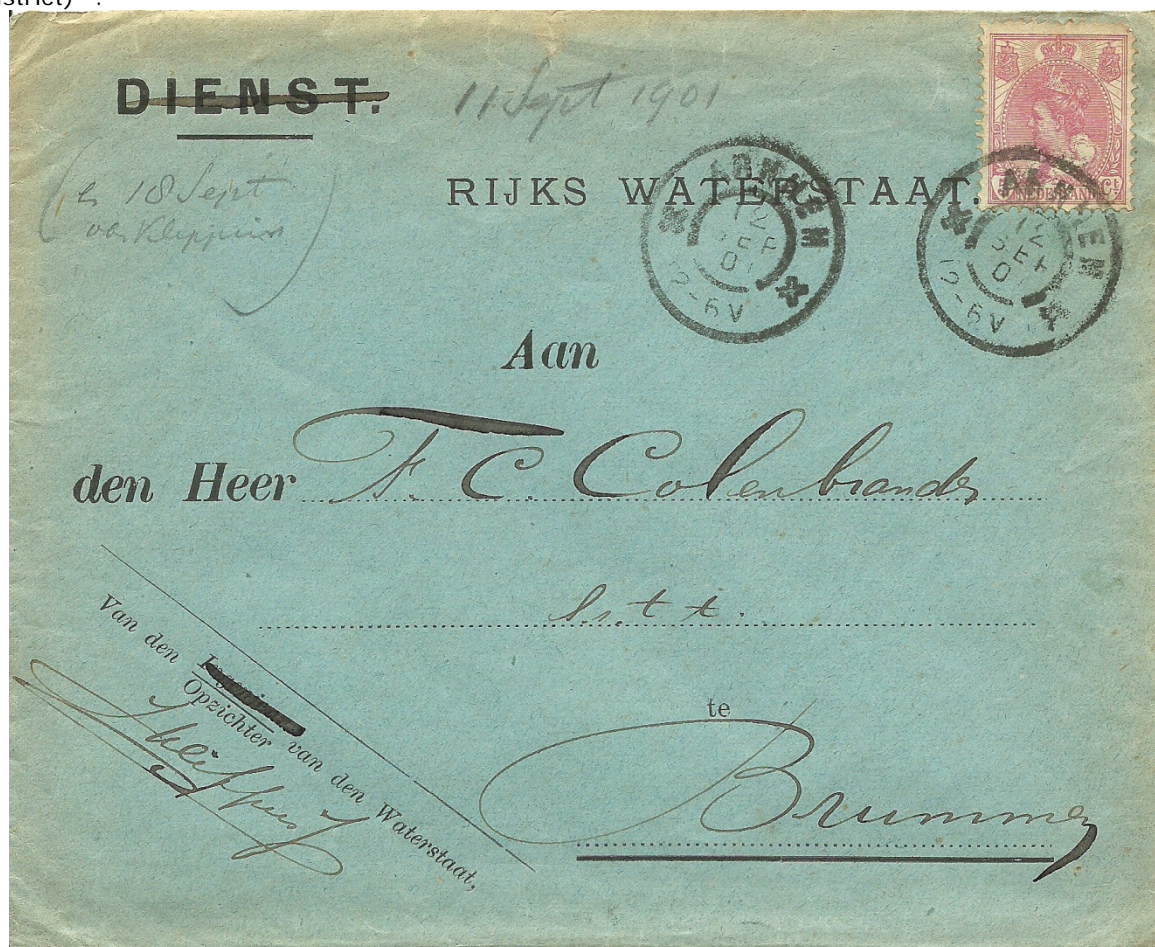 DIENST.
11 Sept 1901
(en 18 Sept
van Kleppius)
RIJKS WATERSTAAT.
NEDERLAND
ARNHEM
12
SEP
01
12-6V
ARNHEM
12
SEP
0
12-6V
Aan
den Heer F. C. Colenbrander
te
Brummen
Van den
Opzichter van den Waterstaat,